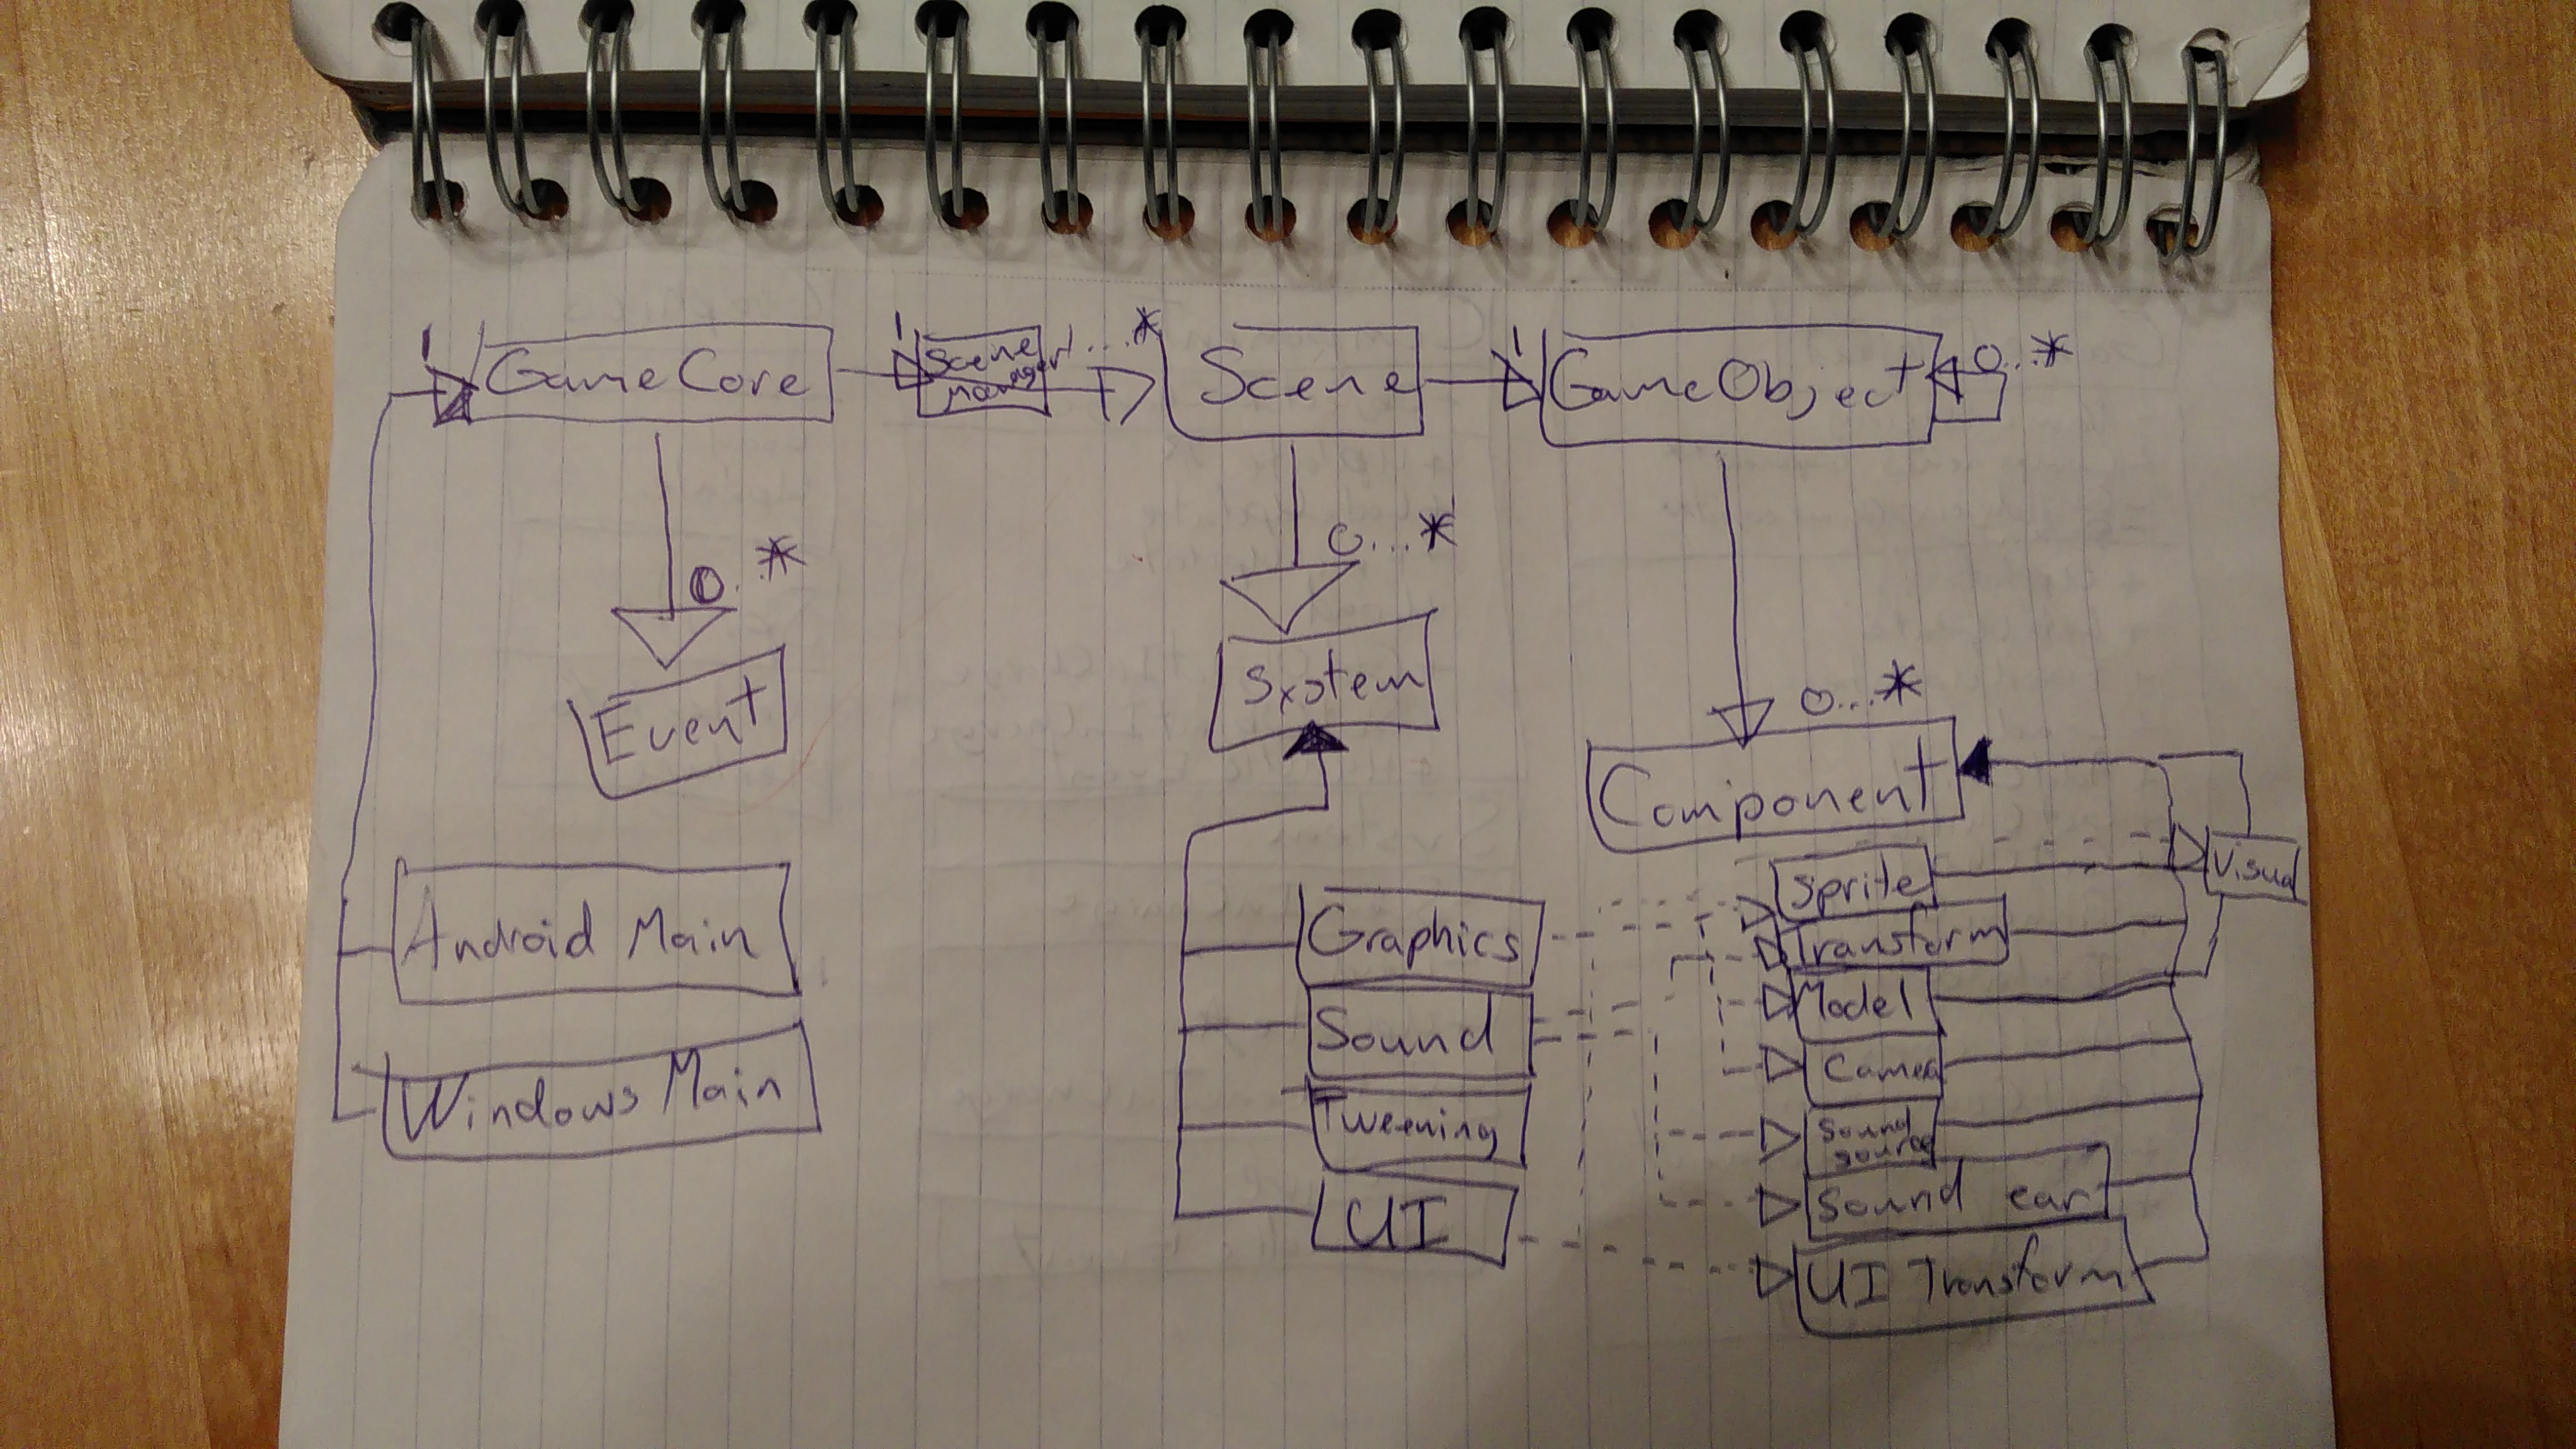 1
GameCore
1
Scene
Manager
1...*
Scene
1
GameObject
0...*
0..*
Event
0...*
System
0...*
Component
Visual
Android Main
Windows Main
Graphics
Sound
Tweening
UI
Sprite
Transform
Model
Camea
Sound
source
Sound ear
UI Transform